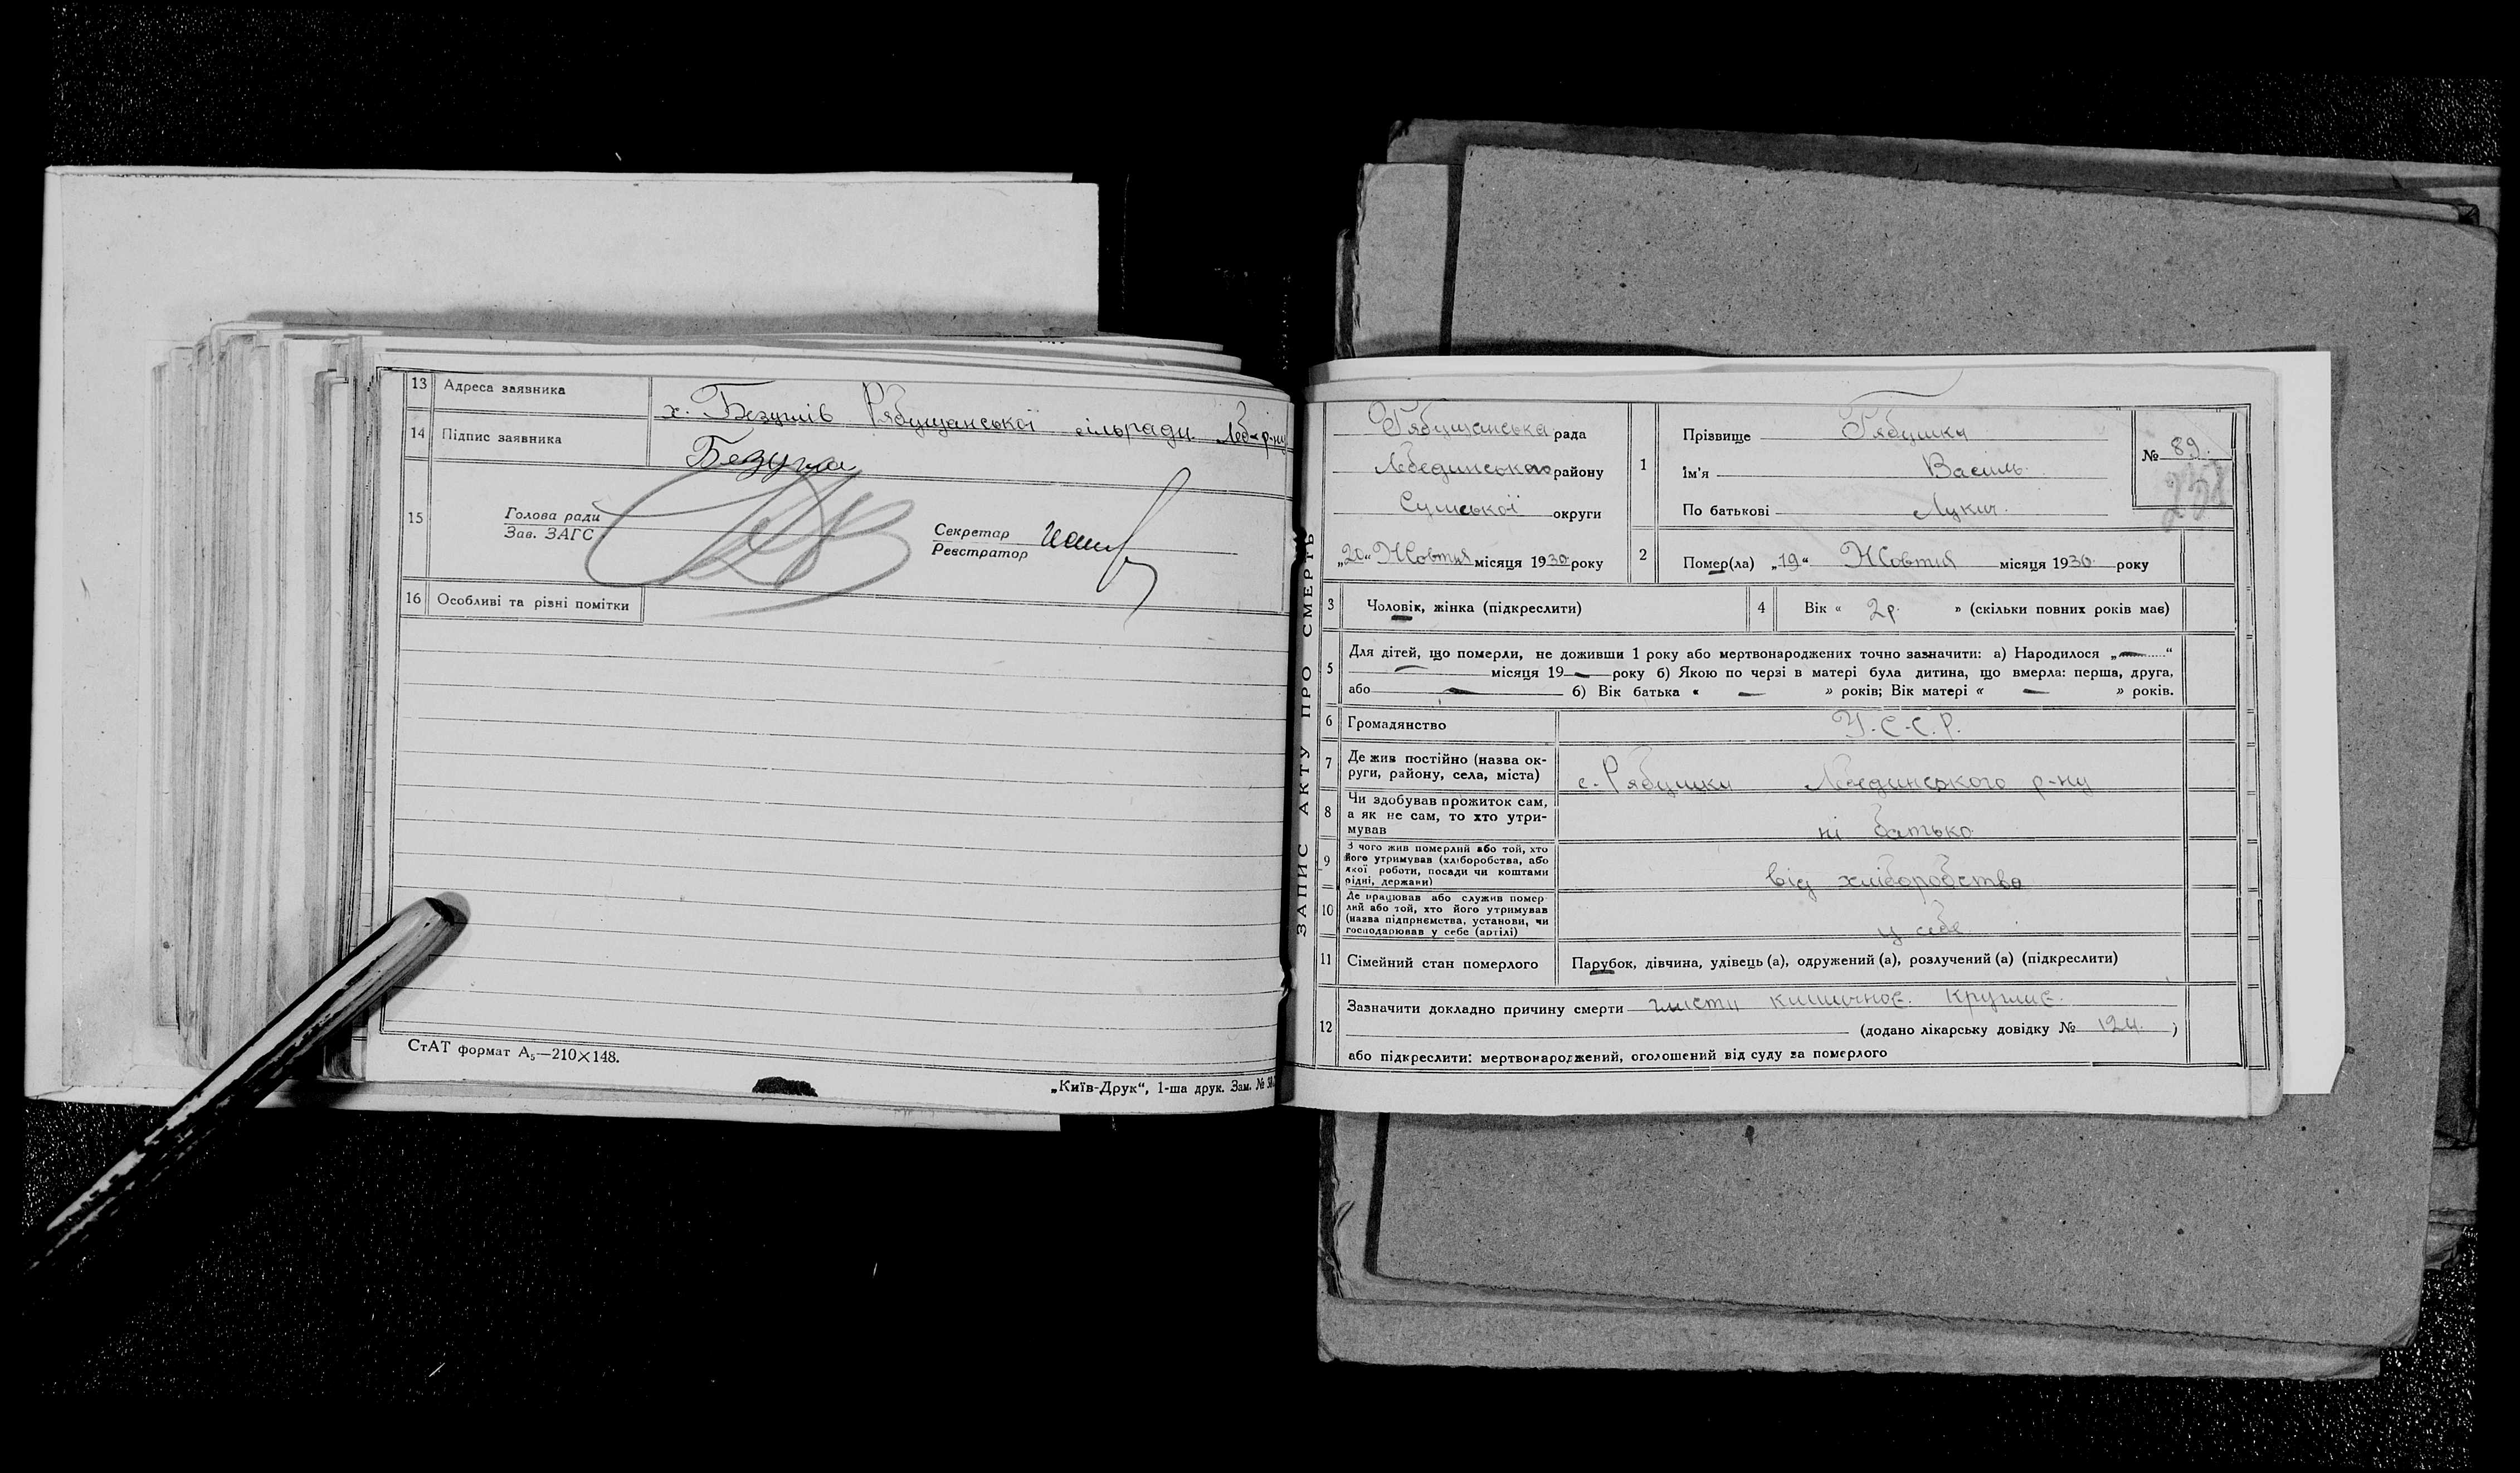 13 Адреса заявника х. Безуглів Рябущанської сільради Леб. р-ну
14 Підпис заявника Безугла
15 Голова ради
Зав. ЗАГС
Секретар
Реєстратор
16 Особливі та різні помітки
СтАТ формат А5—210×148.
„Київ-Друк“, 1-ша друк. Зам. №
ЗАПИС АКТУ ПРО СМЕРТЬ
Рябущанська рада
Лебединського району
Сумської округи
„20“ Жовтня місяця 1930 року
1 Прізвище Рябушка
Ім'я Василь
По батькові Лукич.
№ 89.
238
2 Помер(ла) „19“ Жовтня місяця 1930 року
3 Чоловік, жінка (підкреслити)
4 Вік « 2 р. » (скільки повних років має)
5 Для дітей, що померли, не доживши 1 року або мертвонароджених точно зазначити: а) Народилося „—“
— місяця 19— року б) Якою по черзі в матері була дитина, що вмерла: перша, друга,
або — б) Вік батька « — » років; Вік матері « — » років.
6 Громадянство У.С.С.Р.
7 Де жив постійно (назва ок-
руги, району, села, міста) с. Рябушки Лебединського р-ну
8 Чи здобував прожиток сам,
а як не сам, то хто утри-
мував ні батько
9 З чого жив померлий або той, хто
його утримував (хліборобства, або
якої роботи, посади чи коштами
рідні, держави) від хліборобства
10 Де працював або служив помер-
лий або той, хто його утримував
(назва підприємства, установи, чи
господарював у себе (артілі) у себе
11 Сімейний стан померлого Парубок, дівчина, удівець (а), одружений (а), розлучений (а) (підкреслити)
12 Зазначити докладно причину смерти глисти кишичноє. круглиє.
(додано лікарську довідку № 124. )
або підкреслити: мертвонароджений, оголошений від суду за померлого